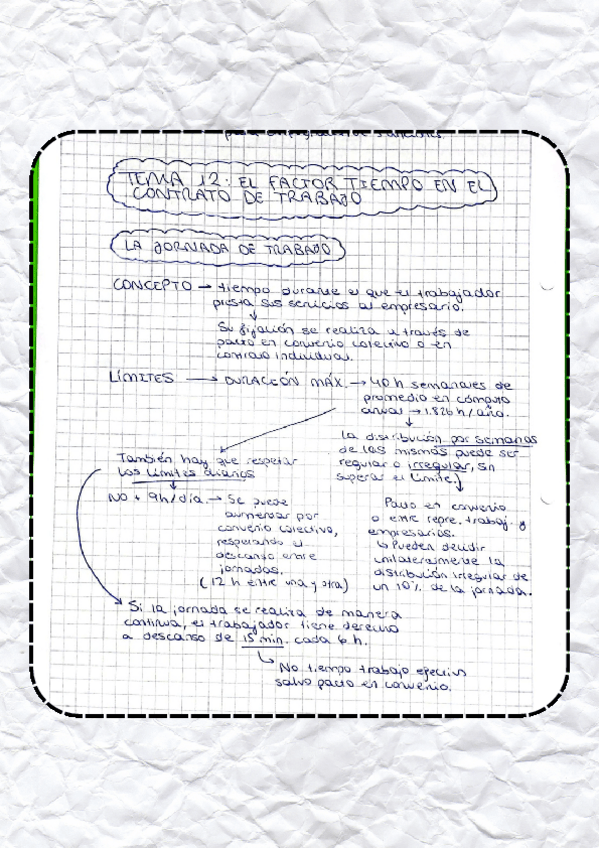 TEMA 12: EL FACTOR TIEMPO EN EL
CONTRATO DE TRABAJO
LA JORNADA DE TRABAJO
CONCEPTO → tiempo durante el que el trabajador
presta sus servicios al empresario.
Su fijación se realiza a través de
pacto en convenio colectivo o en
contrato individual.
LÍMITES → DURACIÓN MÁX. → 40 h semanales de
promedio en cómputo
anual → 1.826 h/año.
La distribución por semanas
de las mismas puede ser
regular o irregular, sin
superar el límite.
También hay que respetar
los límites diarios
NO + 9h/día. → Se puede
aumentar por
convenio colectivo,
respetando el
descanso entre
jornadas.
(12 h entre una y otra)
Pacto en convenio
o entre repre. trabaj. y
empresarios.
↳ Pueden decidir
unilateralmente la
distribución irregular de
un 10% de la jornada.
Si la jornada se realiza de manera
continua, el trabajador tiene derecho
a descanso de 15 min. cada 6 h.
↳ No tiempo trabajo efectivo
salvo pacto en convenio.